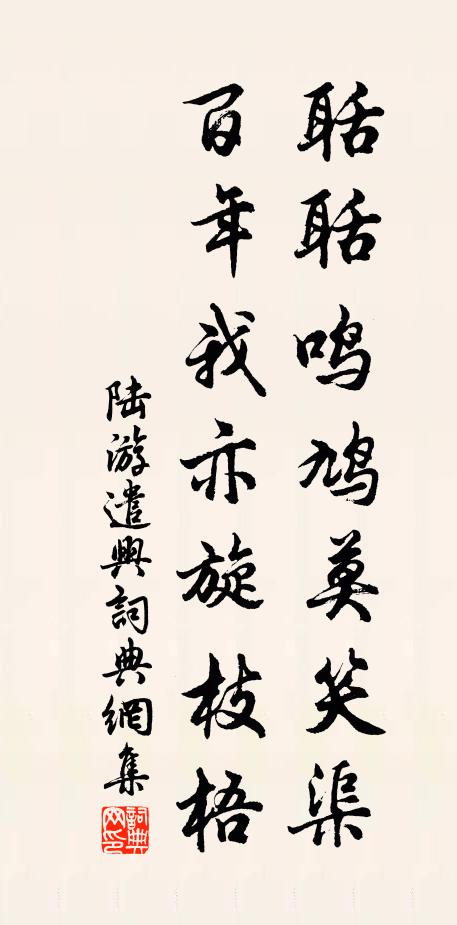 聒聒鸣鸠莫笑渠
百年我亦旋枝梧
陆游遣興詞典網集
詞典网印